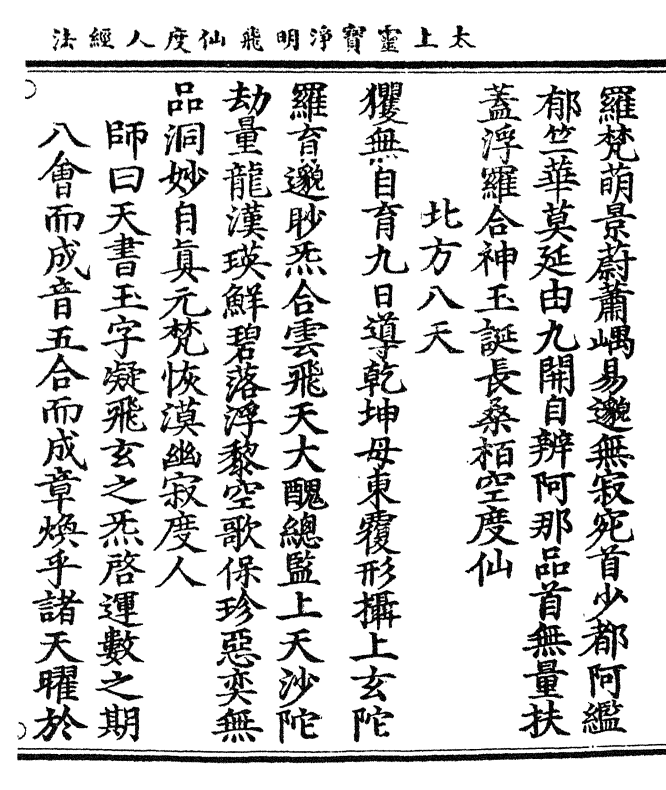 太上靈寳淨明飛仙度人經法
羅梵萌景蔚蕭嵎易邈無寂宛首少都阿鑑
郁竺華莫延由九開自辨阿那品首無量扶
蓋浮羅合神玉誕長桑栢空度仙
北方八天
玃無自育九日導乾坤母東覆形攝上玄陀
羅育邈眇炁合雲飛天大醜總監上天沙陀
劫量龍漢瑛鮮碧落浮黎空歌保珍惡奕無
品洞妙自真元梵恢漠幽寂度人
師曰天書玉字凝飛玄之炁啓運數之期
八會而成音五合而成章煥乎諸天曜於